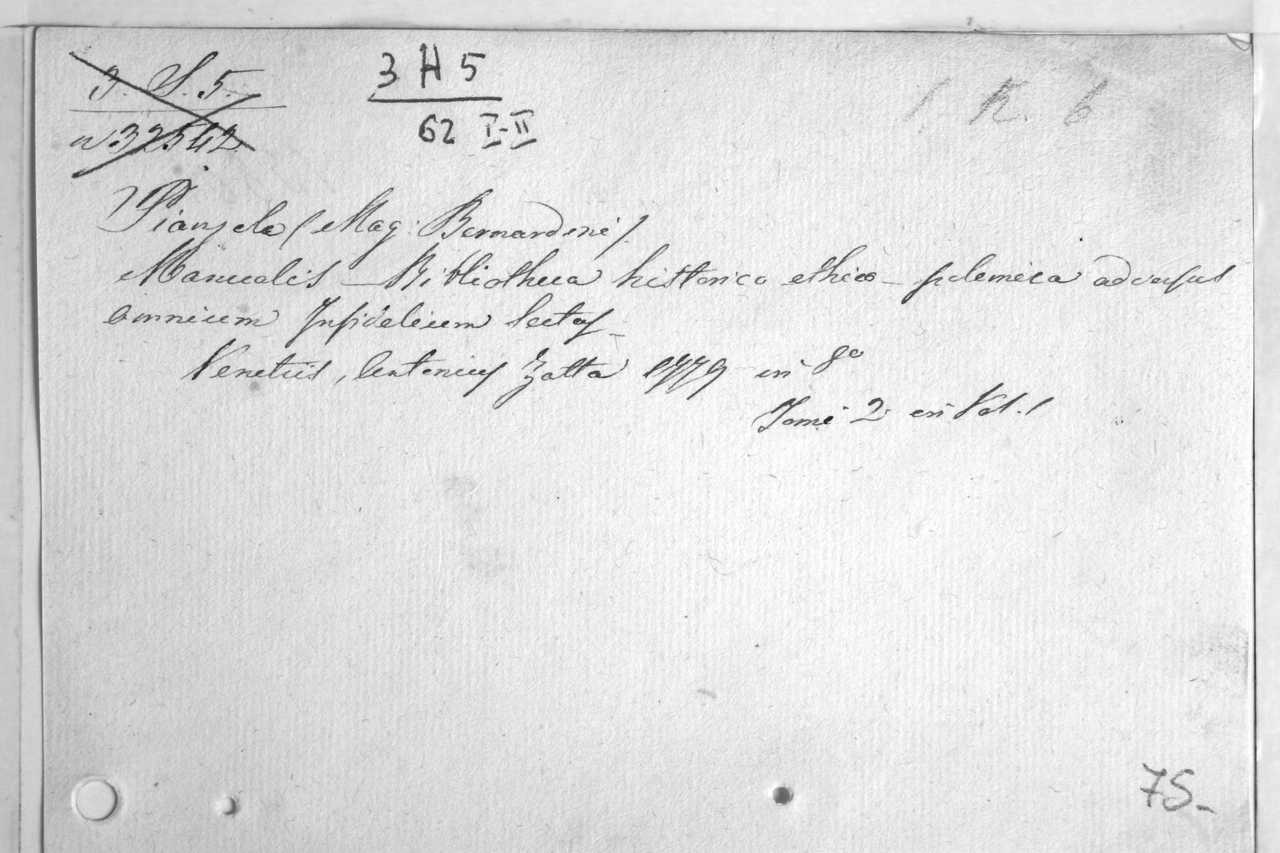 3. S. 5.
3 H 5
1 K. 6
n 32542
62 I-II
Pianzola (Mag: Bernardini).
Manualis Bibliotheca historico ethico-polemica adversus
omnium Infidelium sectas
Venetiis, Antonius Zatta 1779 in 8o
Tomi 2 in Vol. 1
75-